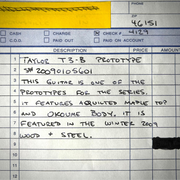 ZIP
46151
CASH
CHARGE
CHECK #
4129
C.O.D.
PAID OUT
PAID ON ACCOUNT
DESCRIPTION
PRICE
AMOUNT
1 TAYLOR T3-B PROTOTYPE
2 SN# 20090105601
3 THIS GUITAR IS ONE OF THE
4 PROTOTYPES FOR THE SERIES.
5 IT FEATURES A QUILTED MAPLE TOP
6 AND OKOUME BODY, IT IS
7 FEATURED IN THE WINTER 2009
8 WOOD + STEEL.
9
10